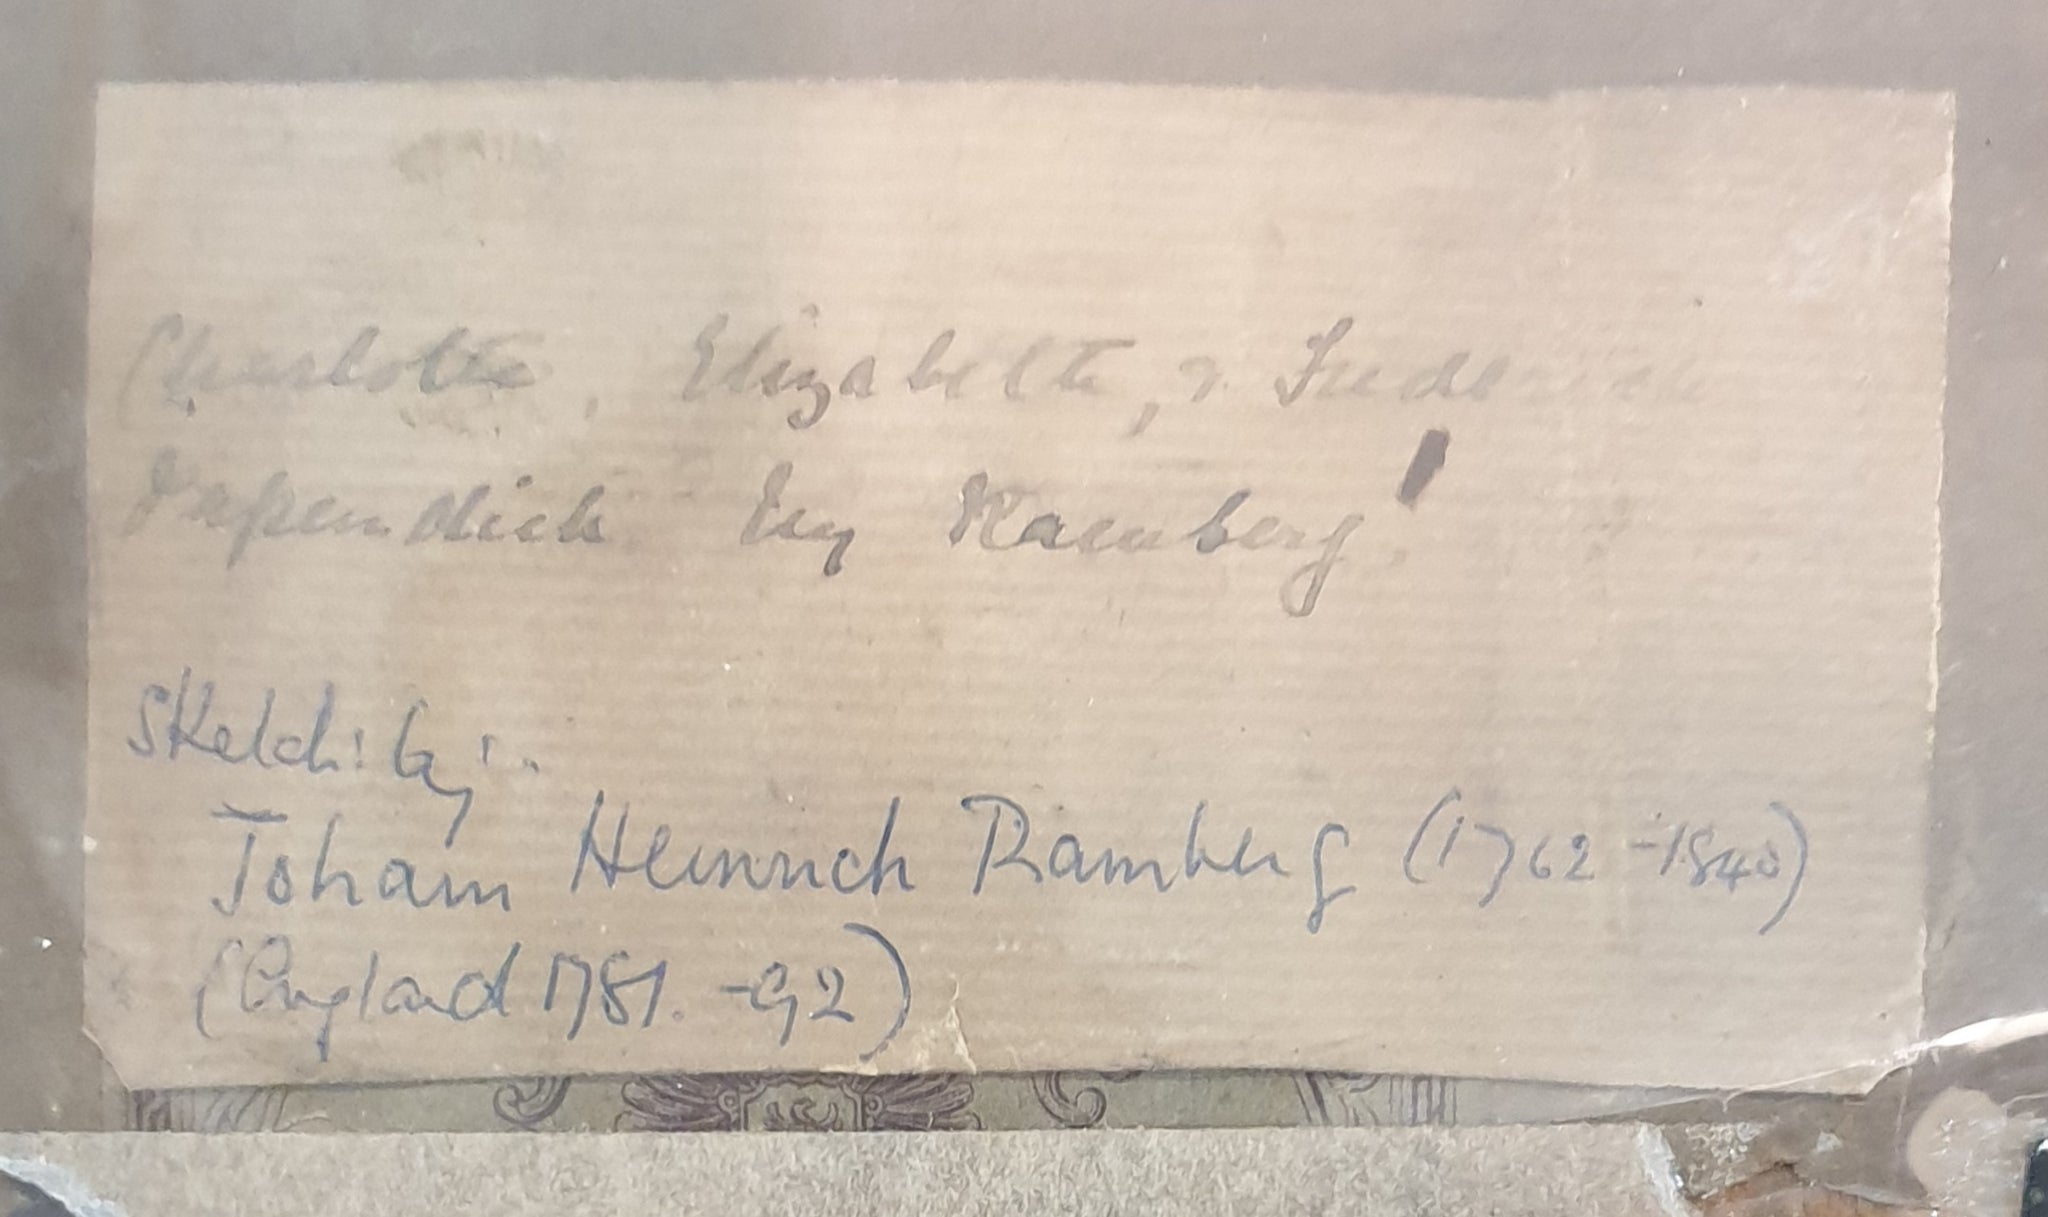 Charlotte, Elizabeth, & Frede
Papendiek by Ramberg!
Sketch: by:-
Johann Heinrich Ramberg (1762-1840)
(England 1781.-92)